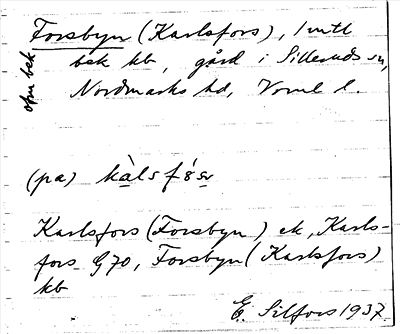 Forsbyn (Karlsfors), 1 mtl
bek kb, gård i Silleruds sn,
Nordmarks hd, Verml l.
(på) kàlsfǿsr
Karlsfors (Forsbyn) ek, Karls-
fors G70, Forsbyn (Karlsfors)
kb
E. Silfors 1937